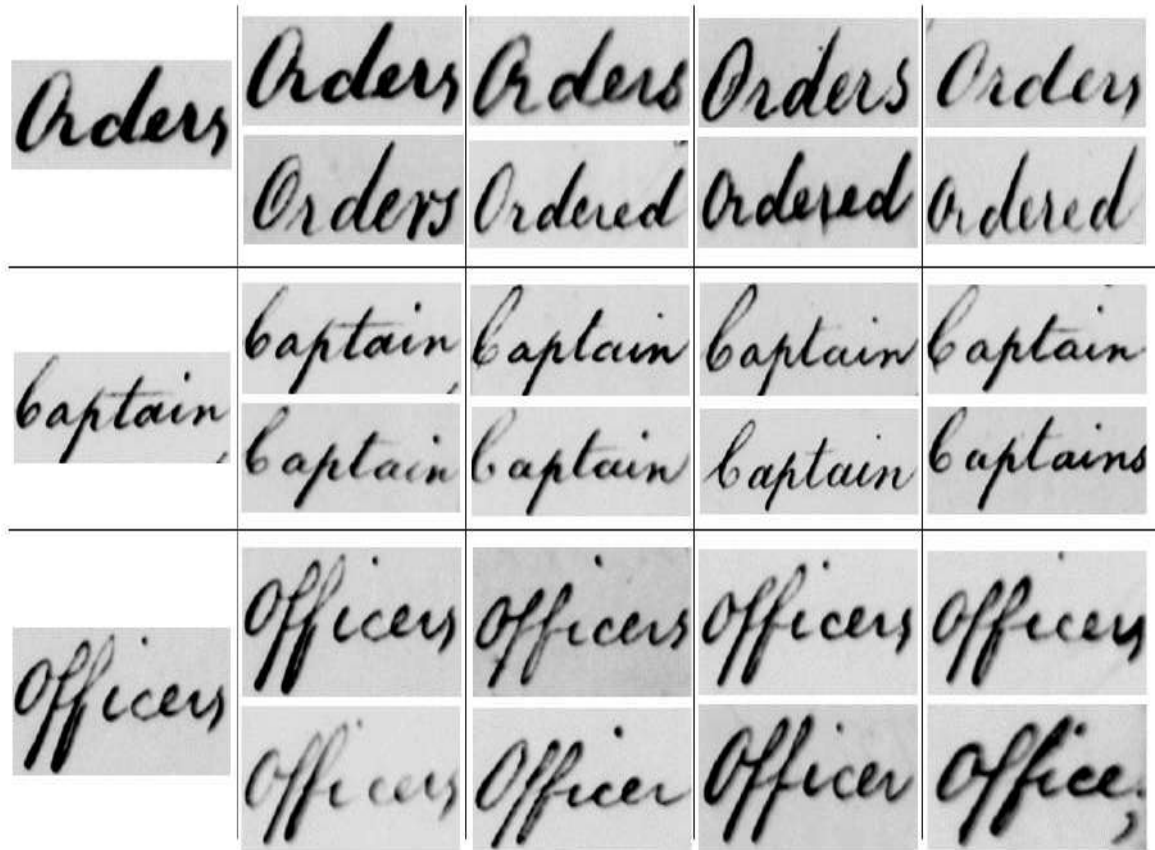 Orders Orders Orders Orders
Orders
Orders Ordered Ordered Ordered
Captain, Captain Captain Captain
Captain,
Captain Captain Captain Captains
Officers Officers Officers Officers
Officers
Officers Officer Officer Office,